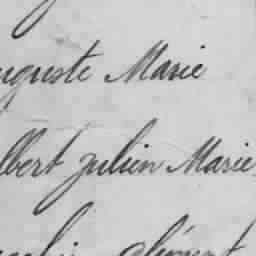 uguste Marie
lbert julien Marie